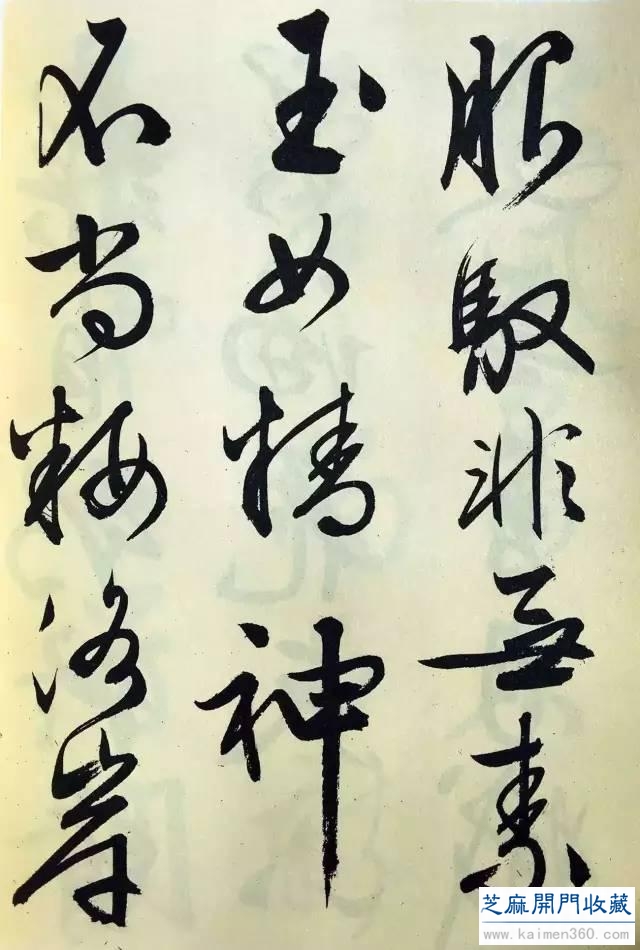 服馭非無素
玉女精神
不尚洛岸
芝麻開門收藏
www.kaimen360.com